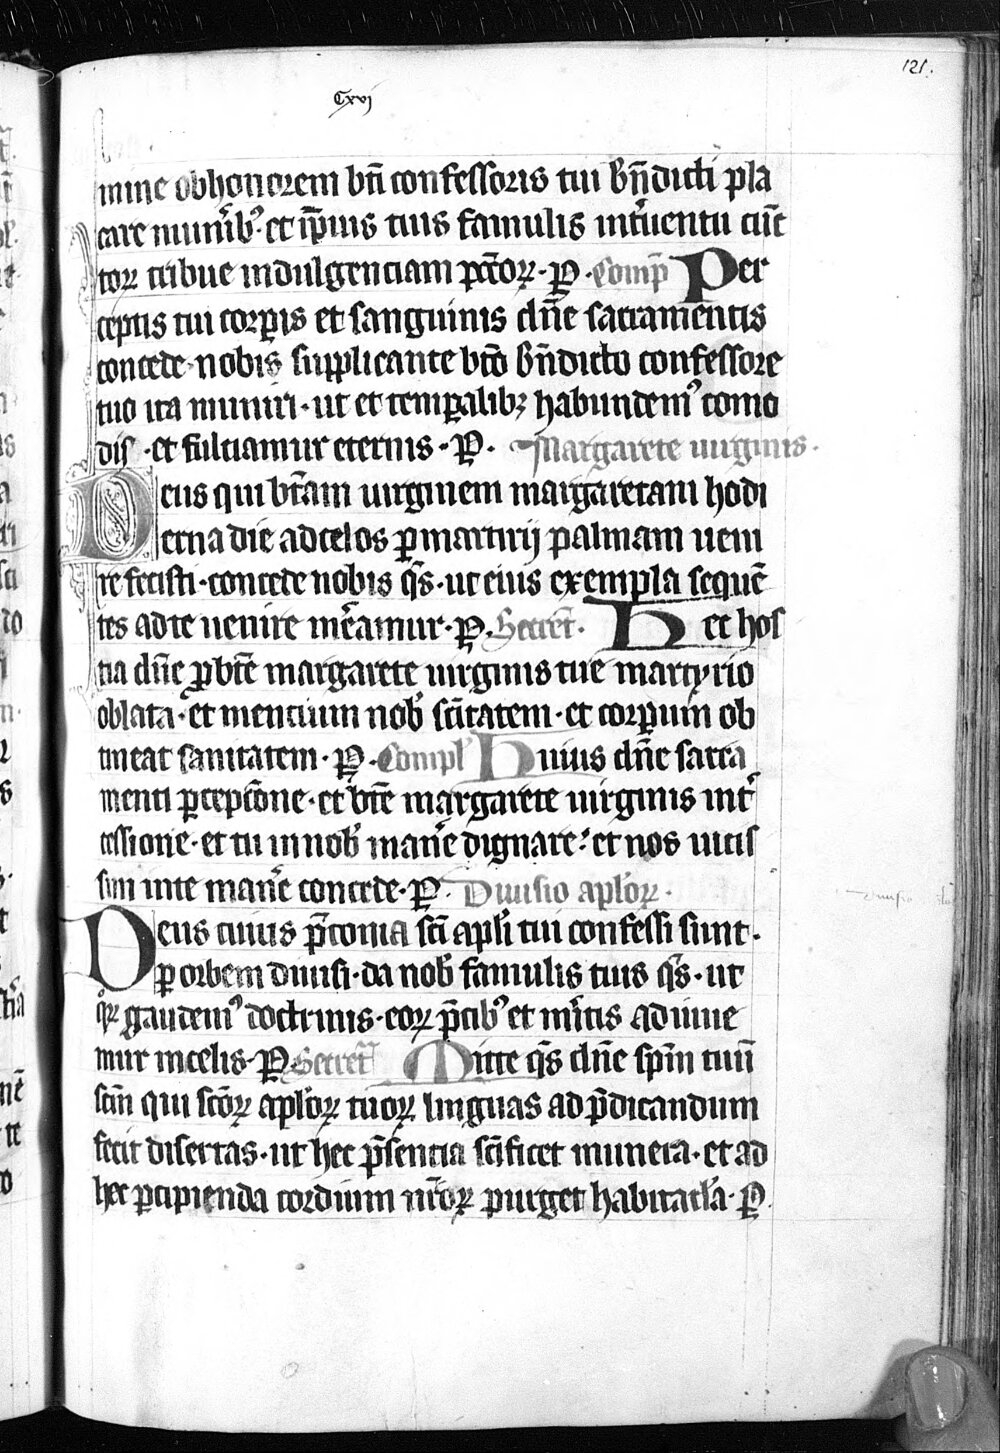 121.
Cxvj
mine ob honorem bt̄i confessoris tui bn̄dicti pla
care munīb⁹· et ip̄ius tuis famulis int̄uentu cūc
toꝝ tribue indulgenciam pcc̄oꝝ· ꝑ. Comp̄ Per
ceptis tui corꝑis et sanguinis dn̄e sacramentis
concede nobis supplicante bt̄o bn̄dicto confessore
tuo ita muniri· ut et temꝑalibꝫ habundem⁹ como
dis· et fulciamur eternis· ꝑ. Margarete uirginis·
Deus qui bt̄am uirginem margaretam hodi
erna die ad celos ꝑ martirij palmam ueni
re fecisti· concede nobis q̄s· ut eius exempla sequē
tes ad te uenire mēamur· ꝑ. Secret̄· Hec hos
tia dn̄e ꝓ bt̄e margarete uirginis tue martyrio
oblata· et mencium nob̄ sc̄itatem· et corꝑum ob
tineat sanitatem· ꝑ. Compl̄ Huius dn̄e sacra
menti ꝑcepc̄one· et bt̄e margarete uirginis int̄
cessione· et tu in nob̄ man̄e dignare· et nos uicis
sim in te man̄e concede· ꝑ. Diuisio apl̄oꝝ·
Deus cuius p̄conia sc̄i apl̄i tui confessi sunt·
ꝑ orbem diuisi· da nob̄ famulis tuis q̄s· ut
q̊ꝝ gaudem⁹ doctrinis· eoꝝ p̄cib⁹ et mīitis adiuue
mur in celis· ꝑ. Secret̄ Mitte q̄s dn̄e sp̄m tuū
sc̄m qui sc̄oꝝ apl̄oꝝ tuoꝝ linguas ad p̄dicandum
fecit disertas· ut hec p̄sencia sc̄ificet munera· et ad
hec ꝑcipienda cordium nr̄oꝝ purget habitacl̄a· ꝑ.